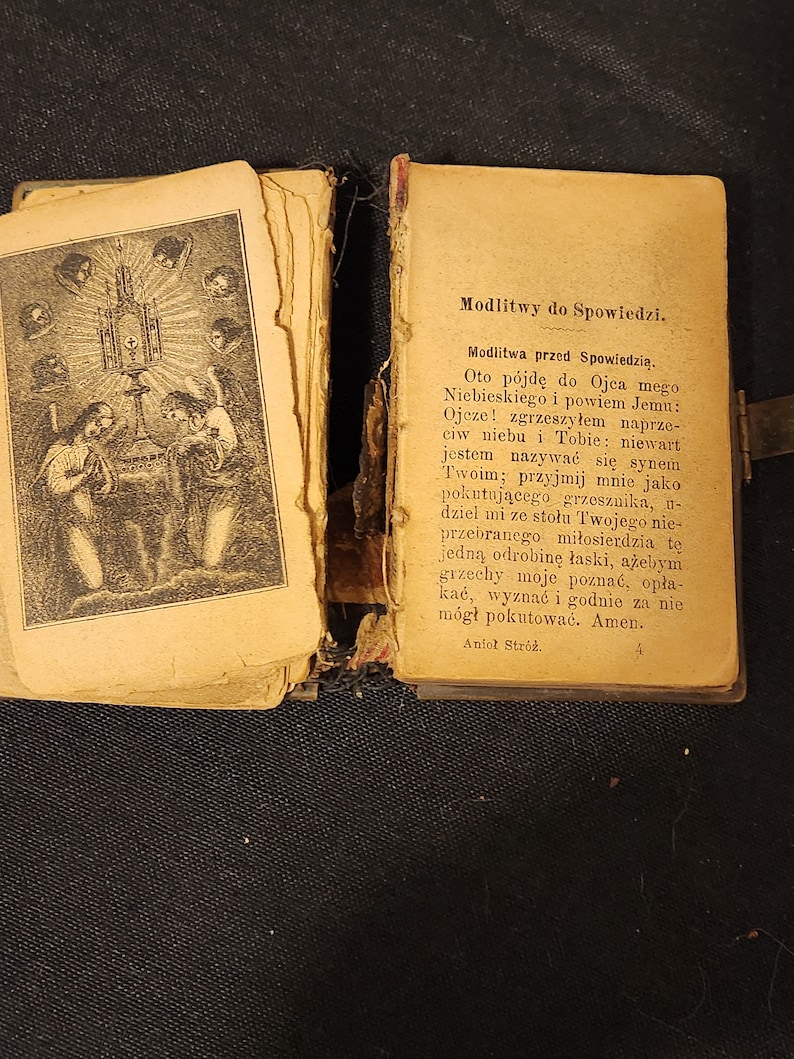 Modlitwy do Spowiedzi.
Modlitwa przed Spowiedzią.
Oto pójdę do Ojca mego
Niebieskiego i powiem Jemu:
Ojcze! zgrzeszyłem naprze-
ciw niebu i Tobie: niewart
jestem nazywać się synem
Twoim; przyjmij mnie jako
pokutującego grzesznika, u-
dziel mi ze stołu Twojego nie-
przebranego miłosierdzia tę
jedną odrobinę łaski, ażebym
grzechy moje poznać, opła-
kać, wyznać i godnie za nie
mógł pokutować. Amen.
Anioł Stróż. 4